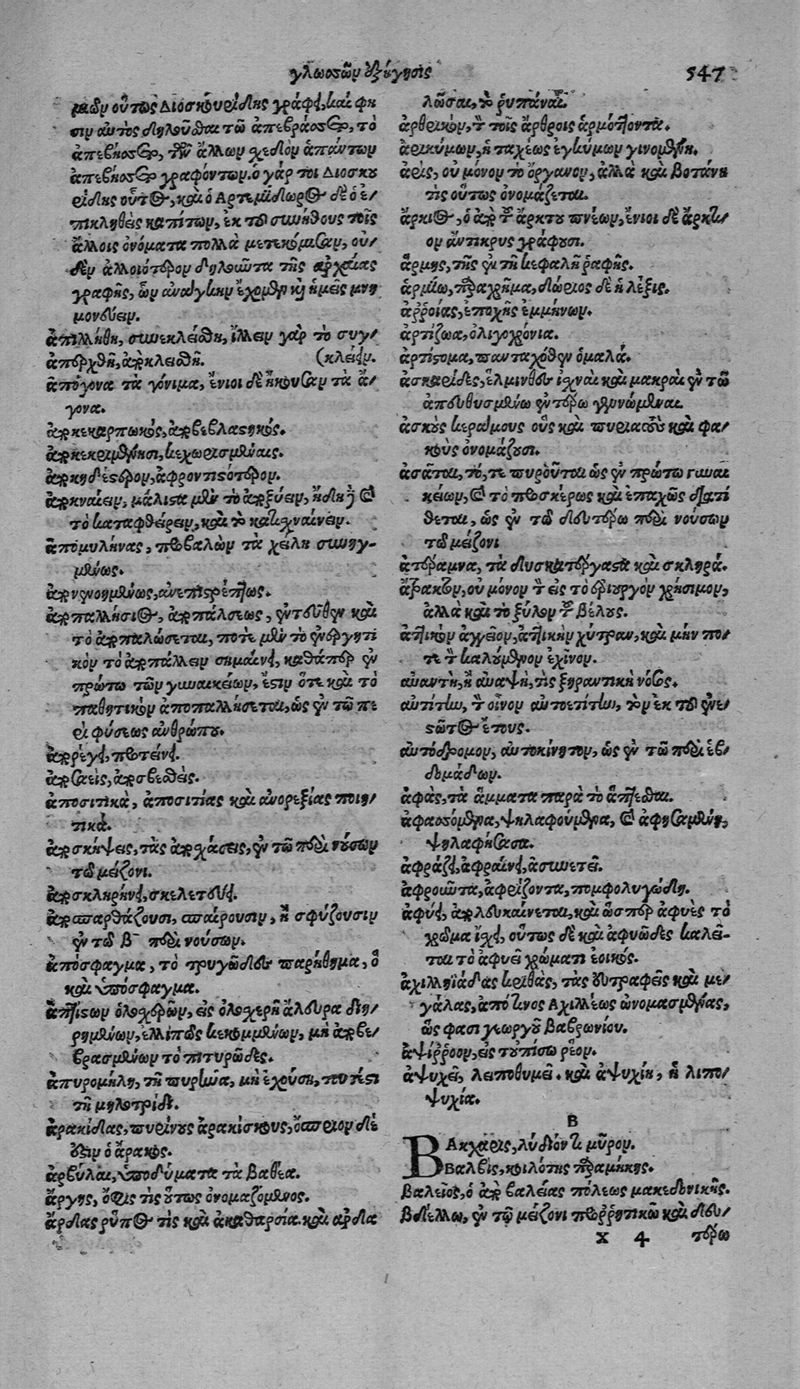 γλωσσῶν ἐξήγησις 547
μεν οὕτως Διοσκουρίδης γράφει, καί φη
σιν αὐτὸς δηλοῦσθαι τῶ ἀπεβράσθη, τὸ
ἀπεβήσθη, τῶν ἄλλων σχεδὸν ἁπάντων
γραφόντων. ὁ γάρ τοι Διοσκου
ρίδης οὗτος, καὶ ὁ Αρτεμίδωρος δὲ ὁ ἐ-
πικληθεὶς καπίτων, ἐκ τοῦ συνήθους τοῖς
ἄλλοις ὀνόματα πολλὰ μετεκόμισαν, οὐ-
δὲν ἀλλοιότερον δηλοῦντα τῆς ἀρχαίας
γραφῆς, ὧν ἀναγκην ἔχομεν καὶ ἡμεῖς μνη
μονεύειν.
ἀπίλλήθη, συνεκλείσθη, ἴλλειν γὰρ τὸ συγ-
ἀπέρχθη, ἀπεκλείσθη. (κλείειν.
ἀπόγονα τὰ γόνιμα, ἔνιοι δὲ ἤκουσαν τὰ ἄ-
γονα.
ἀποκεκαρπωκός, ἀποβεβλαστηκός.
ἀποκεκριμένῃσι, κεχωρισμέναις.
ἀποκηδέστερον, ἀφροντιστότερον.
ἀποκναίειν, μάλιστα μὲν τὸ ἀποξύειν, ἤδη δὲ καὶ
τὸ καταφθείρειν, καὶ τὸ κατιχναίνειν.
ἀπομυλήνας, προβαλὼν τὰ χείλη συνηγ-
μένως.
ἀπονενοημένως, ἀνεπιστρέπτως.
ἀποπαλλήσιος, ἀποπάλσεως, ἐντεῦθεν καὶ
τὸ ἀποπαλώσεται, ποτὲ μὲν τὸ ἐνεργητι
κὸν τὸ ἀποπάλλειν σημαίνει, καθάπερ ἐν
πρώτω τῶν γυναικείων, ἔστιν ὅτε καὶ τὸ
παθητικὸν ἀποπαλλήσεται, ὡς ἐν τῶ πε
ρὶ φύσεως ἀνθρώπου.
ἀπορέγει, προτείνει.
ἀποσβεὶς, ἀποσβεσθεὶς.
ἀποσιτικὰ, ἀποσιτίας καὶ ἀνορεξίας ποιη-
τικὰ.
ἀποσκήψεις, τὰς ἀποχάσεις, ἐν τῶ περὶ νούσων
τῶ μείζονι.
ἀποσκληρήνει, σκελετεύει.
ἀποσπαρθάζουσι, σπαίρουσιν, ἢ σφύζουσιν
ἐν τῶ β περὶ νούσων.
ἀπόσφαγμα, τὸ τρυγῶδες παρήθημα, ὃ
καὶ ὑπόσφαγμα.
ἀπτίστων ὁλοχρῶν, εἰς ὁλοχερῆ ἄλευρα διη-
ρημένων, ἐλλιπῶς κεκομμένων, μὴ ἀποβε-
βρασμένων τὸ πιτυρῶδες.
ἀπυρομήλη, τῆ πυρῆνα, μὴ ἐχούση, τουτέστι
τῆ μηλωτρίδι.
ἀρακίδας, πυρίνους ἀρακίσκους, ὄσπριον δέ
ἐστιν ὁ ἄρακος.
ἀρβύλαι, ὑποδήματα τὰ βαθέα.
ἄργης, ὄφις τὶς οὕτως ὀνομαζόμενος.
ἄρδας ῥύπος τὶς καὶ ἀκαθαρσία. καὶ ἀρδα
λῶσαι, τὸ ῥυπάναι.
ἀρθρικὸν, τὸ τοῖς ἄρθροις ἁρμόττοντα.
ἀρικύμων, ἡ ταχέως ἐγκύμων γινομένη.
ἀρὶς, οὐ μόνον τὸ ὄργανον, ἀλλὰ καὶ βοτάνη
τὶς οὕτως ὀνομάζεται.
ἄρκιος, ὁ ἀπὸ τῆς ἄρκτου πνέων, ἔνιοι δὲ ἄρκτι-
ον ἄντικρυς γράφουσι.
ἅρμης, τῆς ἐν τῆ κεφαλῆ ῥαφῆς.
ἀρμῶ, παραχρῆμα, δώριος δὲ ἡ λέξις.
ἀῤῥοίας, ἐποχῆς ἐμμήνων.
ἀρτίζωα, ὀλιγοχρόνια.
ἀρτίστομα, πανταχόθεν ὁμαλά.
ἀσκαρίδες, ἕλμινθες ἰχναὶ καὶ μακραὶ ἐν τῶ
ἀπευθυσμένω ἐντέρω γεννώμεναι.
ἀσκοὺς κεράμους οὓς καὶ πυριατοὺς καὶ φα-
κοὺς ὀνομάζουσι.
ἀσᾶται, τό, τε πυροῦται ὡς ἐν πρώτω γυναι
κείων, καὶ τὸ προσκόρως καὶ ἐπαχθῶς διατί
θεται, ὡς ἐν τῶ δευτέρω περὶ νούσων
τῶ μείζονι
ἀτέραμνα, τὰ δυσκατέργαστα καὶ σκληρά.
ἄτρακτον, οὐ μόνον τὸ εἰς τὸ ἐριουργὸν χρήσιμον,
ἀλλὰ καὶ τὸ ξύλον τοῦ βέλους.
ἀττικὸν ἀγγεῖον, ἀττικὴν χύτραν, καὶ μήν πο-
τε τὸ καλούμενον ἐχῖνον.
αὐαντὴ, ἢ αὐαψὴ, τὶς ξηραντικὴ νόσος.
αὐτίτην, τὸν οἶνον αὐτοετίτην, τὸν ἐκ τοῦ ἐνε-
στῶτος ἔτους.
αὐτόδρομον, αὐτοκίνητον, ὡς ἐν τῶ περὶ ἑβ-
δομάδων.
ἀφὰς, τὰ ἅμματα παρὰ τὸ ἅπτεσθαι.
ἀφασσόμενα, ψηλαφούμενα, καὶ ἀφησαμένη,
ψηλαφήσασα.
ἀφράζει, ἀφραίνει, ἀσυνετεῖ.
ἀφροῦντα, ἀφρίζοντα, πομφολυγώδη.
ἀφύει, ἀπολευκαίνεται, καὶ ὥσπερ ἀφυὲς τὸ
χρῶμα ἴχει, οὕτως δὲ καὶ ἀφυῶδες καλεῖ-
ται τὸ ἀφυεῖ χρώματι ἐοικός.
ἀχιλληϊάδας κριθὰς, τὰς εὐτραφεῖς καὶ με-
γάλας, ἀπό τινος Αχιλλέως ὠνομασμένας,
ὥς φασι γεωργοῦ Βαβρωνίου.
ἀψίῤῥοον, εἰς τοὐπίσω ῥέον.
ἀψυχεῖ, λειποθυμεῖ. καὶ ἀψυχίη, ἡ λιπο-
ψυχία.
Β
ΒΑκχαρις, λύδιόν τι μῦρον.
Βαλβὶς, κοιλότης παραμήκης.
βαλεῖος, ὁ ἀπὸ βαλείας πόλεως μακεδονικῆς.
βδέλλω, ἐν τῶ μείζονι προῤῥητικῶ καὶ δευ-
x 4 τέρω